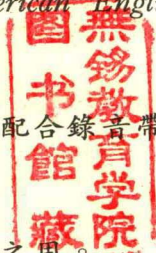 erican Engli
無錫教育学院
图书館藏
配合錄音帶
之用。